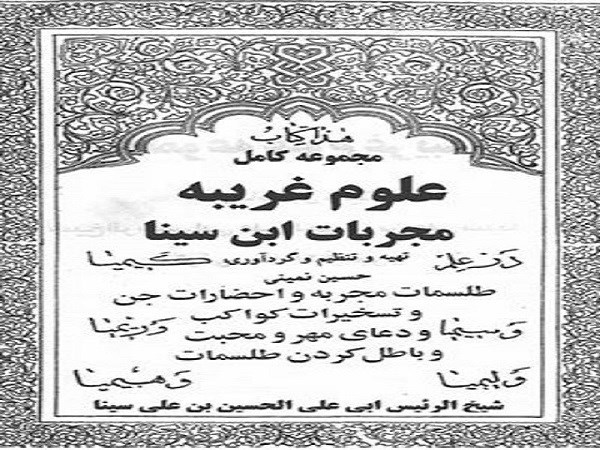 هذا کتاب
مجموعه کامل
علوم غریبه
مجربات ابن سینا
در علم تهیه و تنظیم و گردآوری کیمیا
حسین نمینی
طلسمات مجربه و احضارات جن
و تسخیرات کواکب
و سیمیا و دعای مهر و محبت و ریمیا
و باطل کردن طلسمات
و لیمیا و هیمیا
شیخ الرئیس ابی علی الحسین بن علی سینا